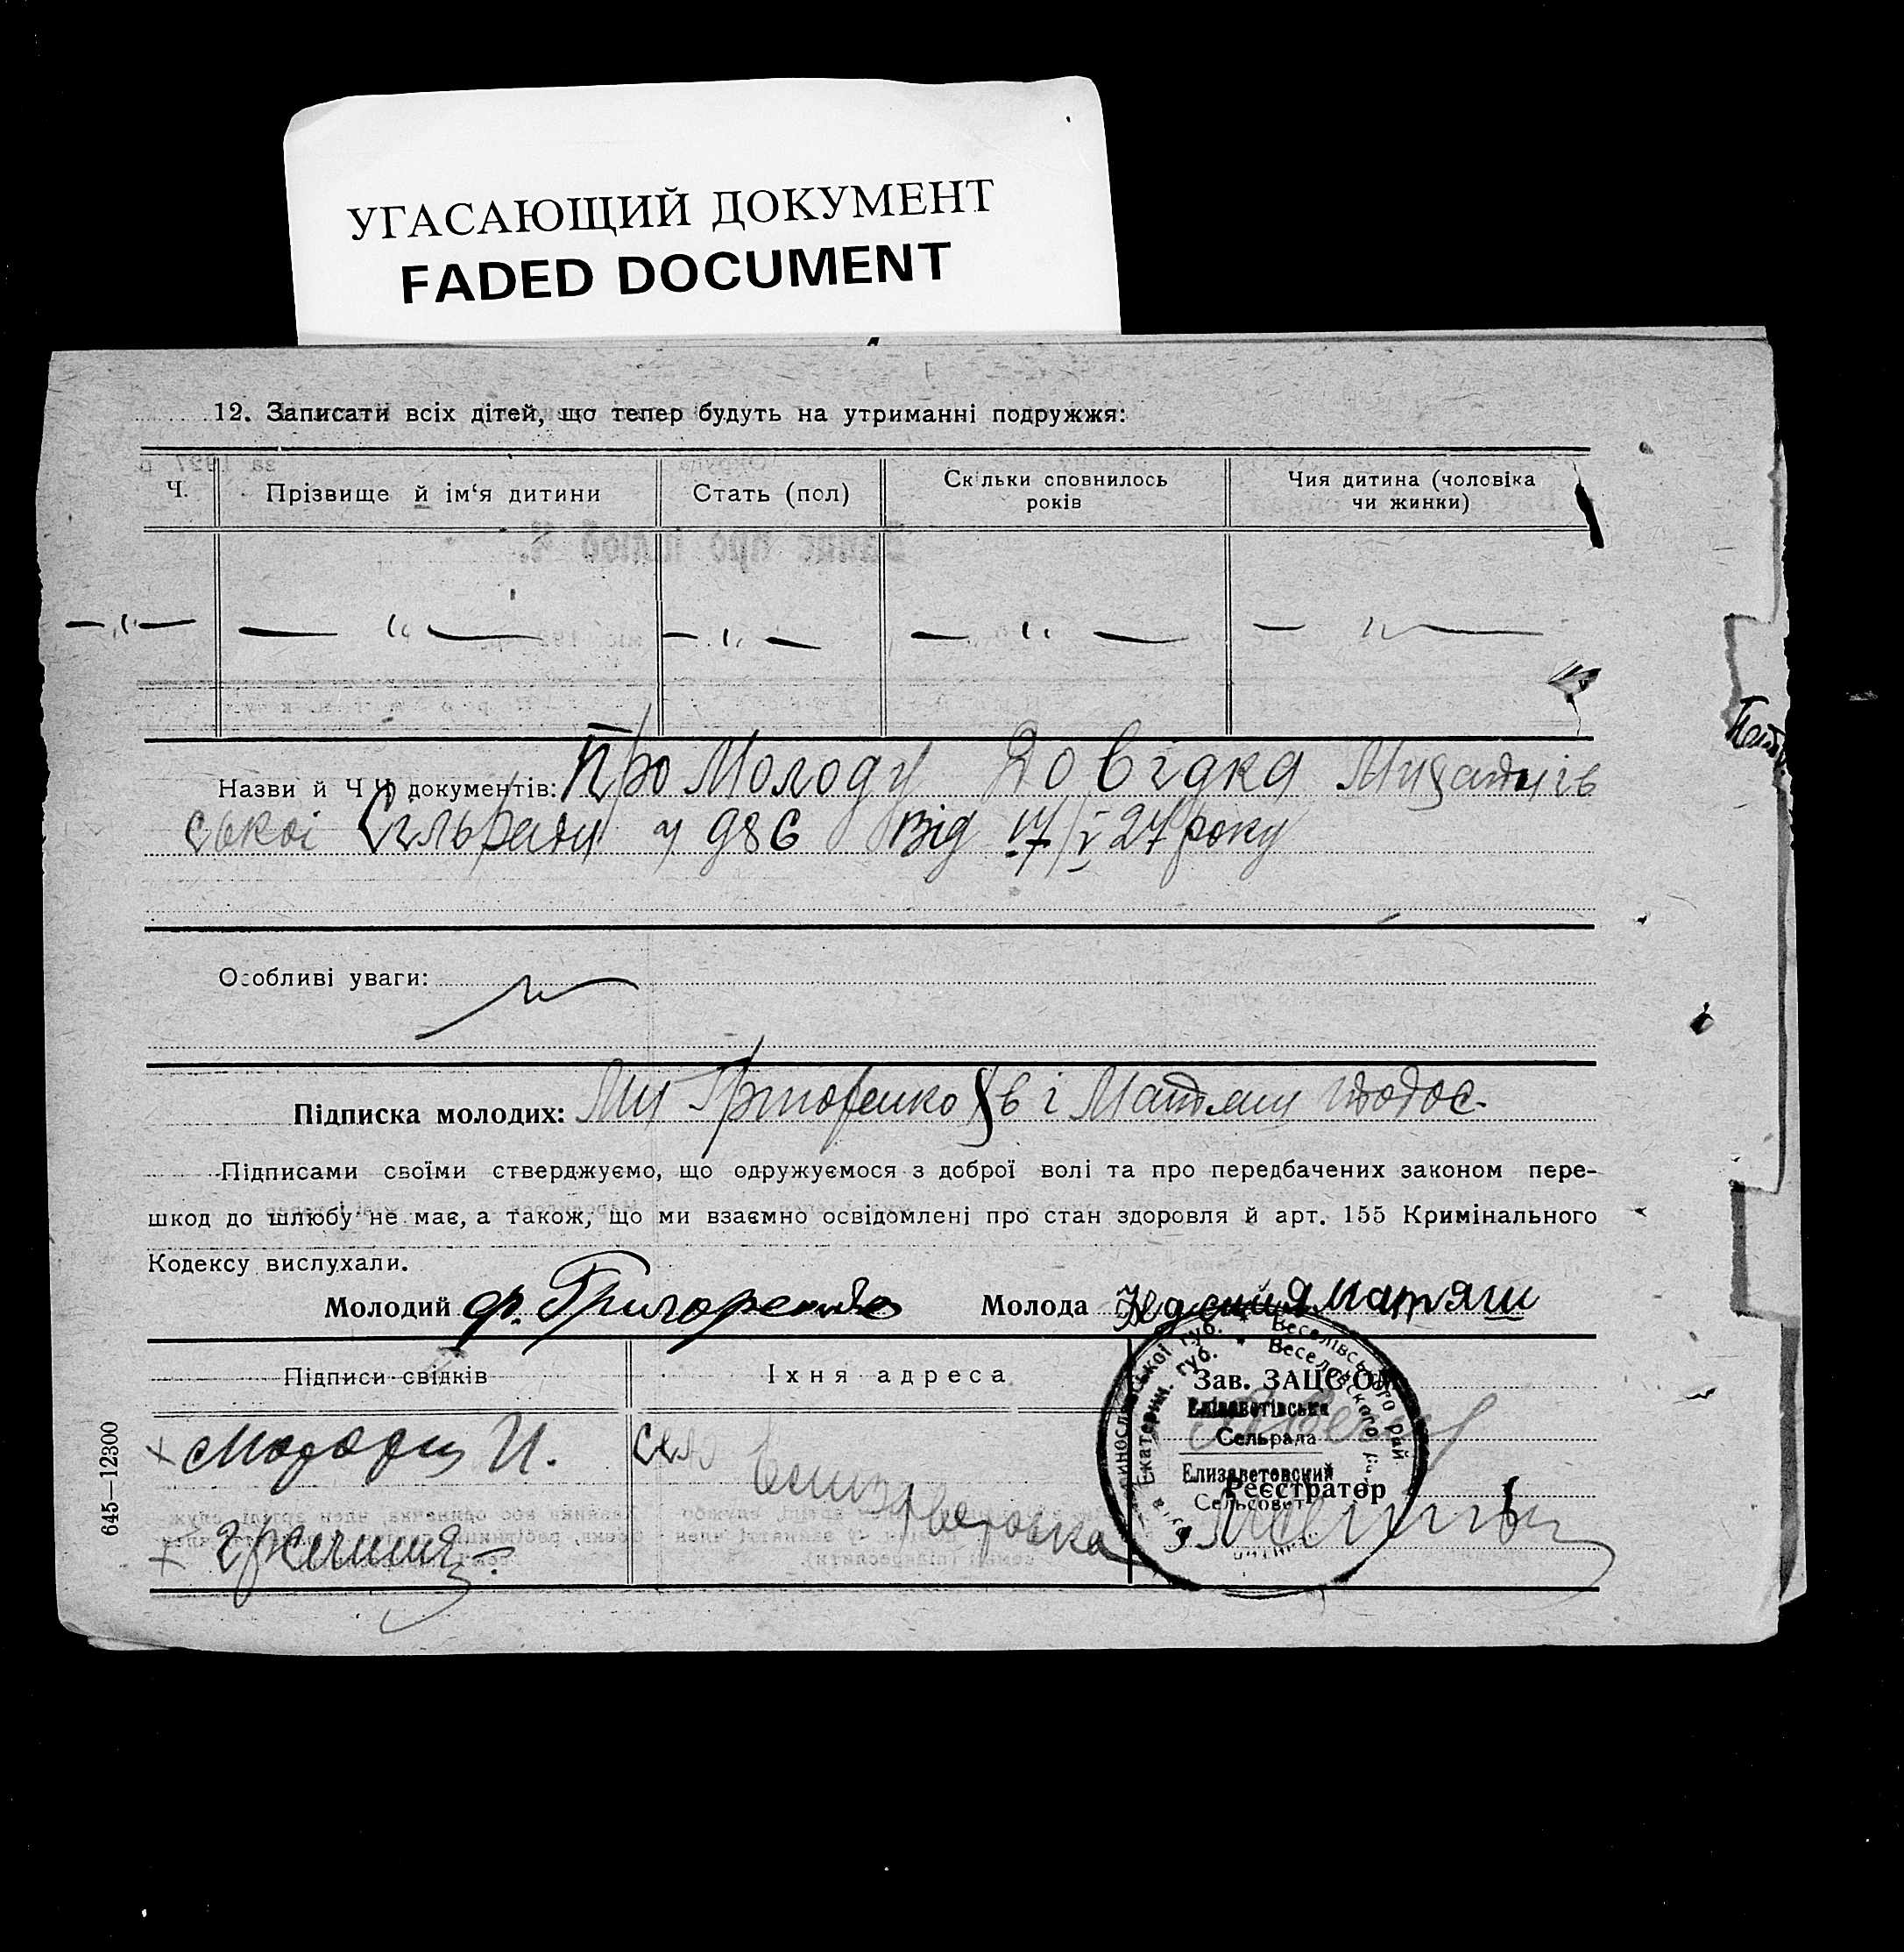 УГАСАЮЩИЙ ДОКУМЕНТ
FADED DOCUMENT
12. Записати всіх дітей, що тепер будуть на утриманні подружжя:
Ч.
Прізвище й ім‘я дитини
Стать (пол)
Скільки сповнилось
років
Чия дитина (чоловіка
чи жинки)
Назви й Ч Ч документів: Про Молоду Довідка
ської Сільради 986 від 17/V 27 року
Особливі уваги:
Підписка молодих: Ми і Матяш
Підписами своїми стверджуємо, що одружуємося з доброї волі та про передбачених законом пере-
шкод до шлюбу не має, а також, що ми взаємно освідомлені про стан здоровля й арт. 155 Кримінального
Кодексу вислухали.
Молодий Ф. Григоренко Молода Матяш
Підписи свідків
Їхня адреса
Зав. ЗАЦС‘ОМ
Єлізаветівська
Сельрада
Елизаветовский
Сельсовет
Реєстратор
И.
сел
Елизаветовка
645—12300